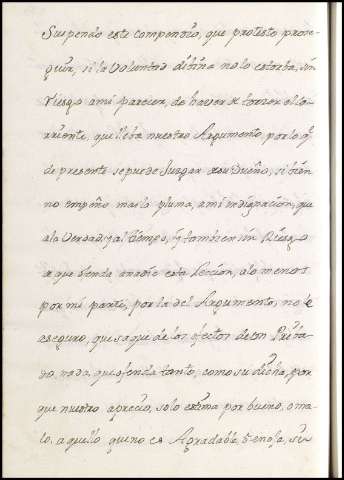 Suspendo este compendio, que protesto prose-
guir, si la Voluntad diuina no lo estorba, sin
riesgo a mi parecer, de haverse torzer el co-
rriente, que lleba nuestro Argumento, por lo q̃
de presente se puede Juzgar su Dueño, si bien
no empeño mas la pluma, a mi indignacion, que
a la Verdad, y al tiempo, y tambien sin Riesgo
a que tienda anadie esta Leccion, a lo menos
por mi parte, por la del Argumento, no le
aseguro, que saque de los efectos de un Priba-
do, nada que ofenda tanto, como su dicha, por
que nuestro aprecio, solo estima por bueno, o ma-
lo, aquello que no es Agradable, o enoja, sin